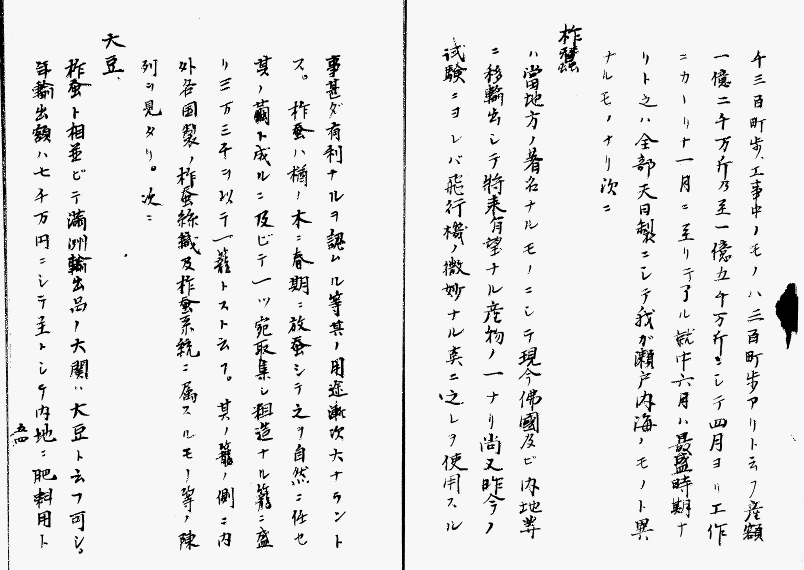 千三百町歩、工事中ノモノハ三百町歩アリト云フ産額
一億二千万斤乃至一億五千万斤ニシテ四月ヨリ工作
ニカーリナ一月ニ至リテアル就中六月ハ最盛時期ナ
リト之ハ全部天日製ニシテ我が瀬戸内海ノモノト異
ナルモノナリ次ニ
柞蠶
ハ當地方ノ著名ナルモノニシテ現今佛國及ビ内地等
ニ移輸出シテ将来有望ナル産物ノ一ナリ尚又昨今ノ
試験ニヨレバ飛行機ノ微妙ナル真ニ之レヲ使用スル
事甚ダ有利ナルヲ認ムル等其ノ用途漸次大ナラント
ス。柞蚕ハ楢ノ木ニ春期ニ放蚕シテ之ヲ自然ニ任セ
其ノ繭ト成ルニ及ビテ一ツ宛取集シ粗造ナル籠ニ盛
リ三万三千ヲ以テ一籠トスト云フ。其ノ籠ノ側ニ内
外各国製ノ柞蚕絲織及柞蚕系統ニ属スルモノ等ノ陳
列ヲ見タリ。次ニ
大豆、
柞蚕ト相並ビテ満洲輸出品ノ大関ハ大豆ト云フ可シ。
年輸出額ハ七千万円ニシテ主トシテ内地ニ肥料用ト
五四